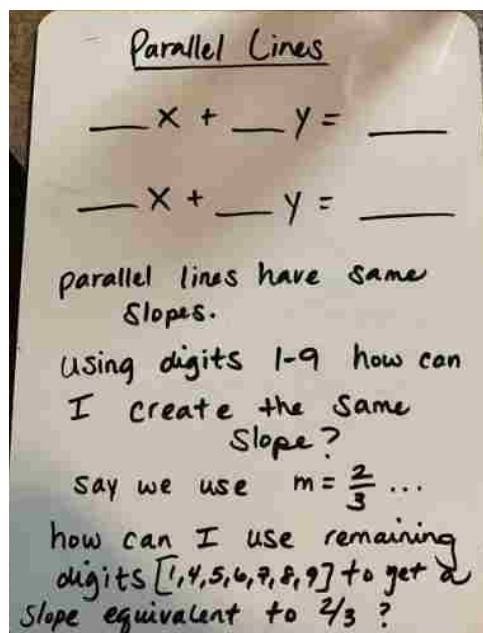 Parallel Lines
__ x + __ y = __
__ x + __ y = __
parallel lines have same
slopes.
using digits 1-9 how can
I create the same
slope?
say we use m = 2/3 ...
how can I use remaining
digits [1,4,5,6,7,8,9] to get a
slope equivalent to 2/3 ?